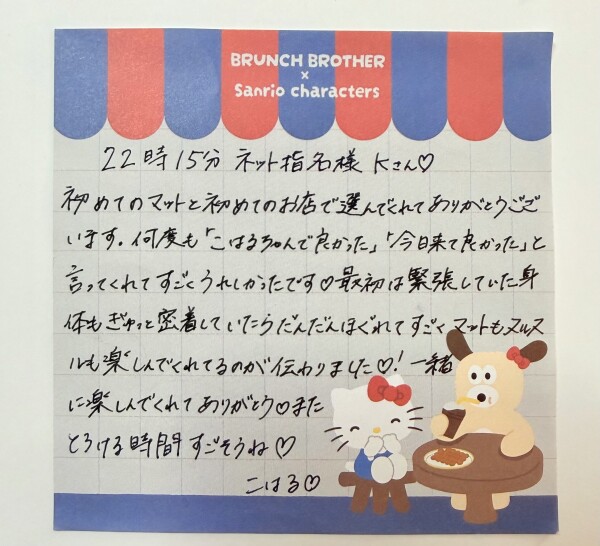 BRUNCH BROTHER
×
Sanrio characters
22時15分 ネット指名様 Kさん♡
初めてのマットと初めてのお店で選んでくれてありがとうござ
います。何度も「こはるちゃんで良かった」「今日来て良かった」と
言ってくれてすごくうれしかったです♡最初は緊張していた身
体もぎゅっと密着していたらだんだんほぐれてすごくマットもヌルヌ
ルも楽しんでくれてるのが伝わりました♡!一緒
に楽しんでくれてありがとう♡また
とろける時間すごそうね♡
こはる♡